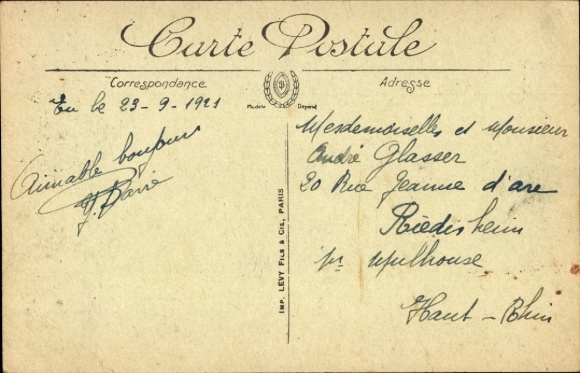 Carte Postale
Correspondance
Adresse
Modèle Déposé
Eu le 23-9-1921
Aimable bonjour
J. Barré
IMP. LÉVY FILS & Cie, PARIS
Mesdemoiselles et Monsieur
André Glasser
20 Rue Jeanne d'arc
Riedisheim
pr Mulhouse
Haut-Rhin